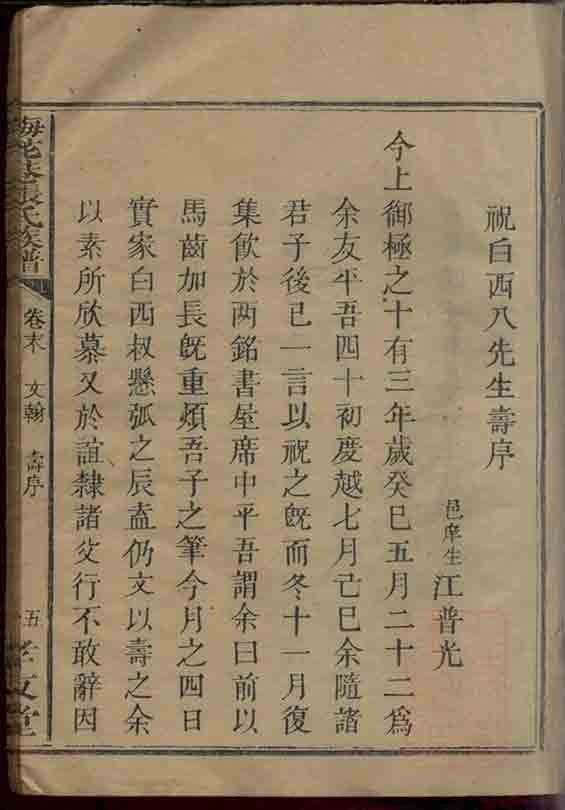 祝白西八先生壽序
邑庠生江普光
今上御極之十有三年歲癸巳五月二十二爲
余友平吾四十初度越七月己巳余隨諸
君子後已一言以祝之旣而冬十一月復
集飲於两銘書屋席中平吾謂余曰前以
馬齒加長旣重煩吾子之筆今月之四日
實家白西叔懸弧之辰盍仍文以壽之余
以素所欣慕又於誼隸諸父行不敢辭因
張氏族譜
卷末 文翰 壽序
五